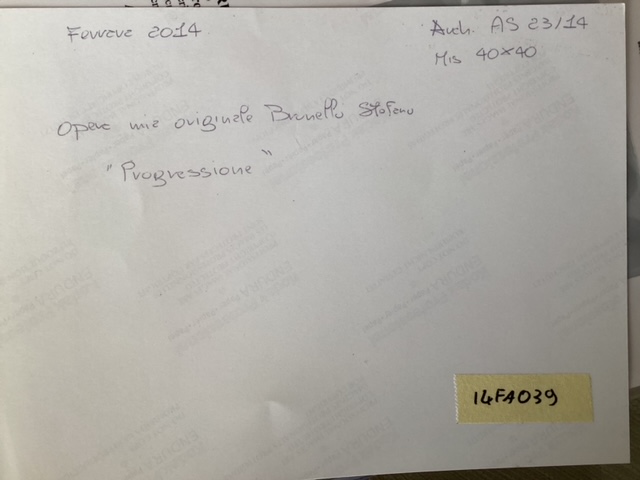 Ferrara 2014
Arch. AS 23/14
Mis 40x40
Opera mia originale Brunello Stefano
"Progressione"
14FA039